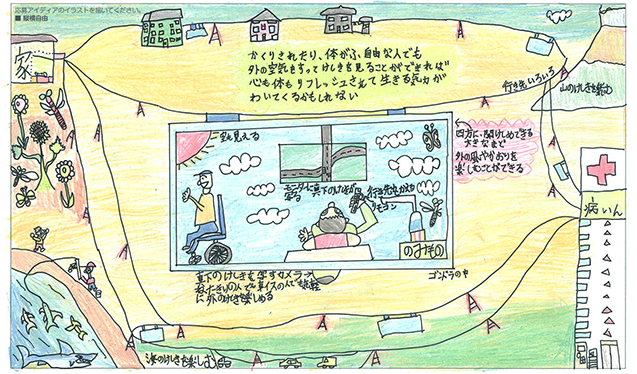 応募アイディアのイラストを描いてください。
■ 縦横自由
家
体がふ自由な人でも
外の空気をすってけしきを見ることができれば
心も体もリフレッシュされて生きる気力が
わいてくるかもしれない
行き先いろいろ
山のけしきを楽しむ
空も見える
四方に開けしめできる
大きなまど
外の風やかおりを
楽しむことができる
モニターに真下のけしきが
写る
リモコン
のみもの
病いん
ゴンドラの中
真下のけしきを写すカメラ
ねたきりの人でも車イスの人でも
に外のけしきを楽しめる
海のけしきを楽しむ